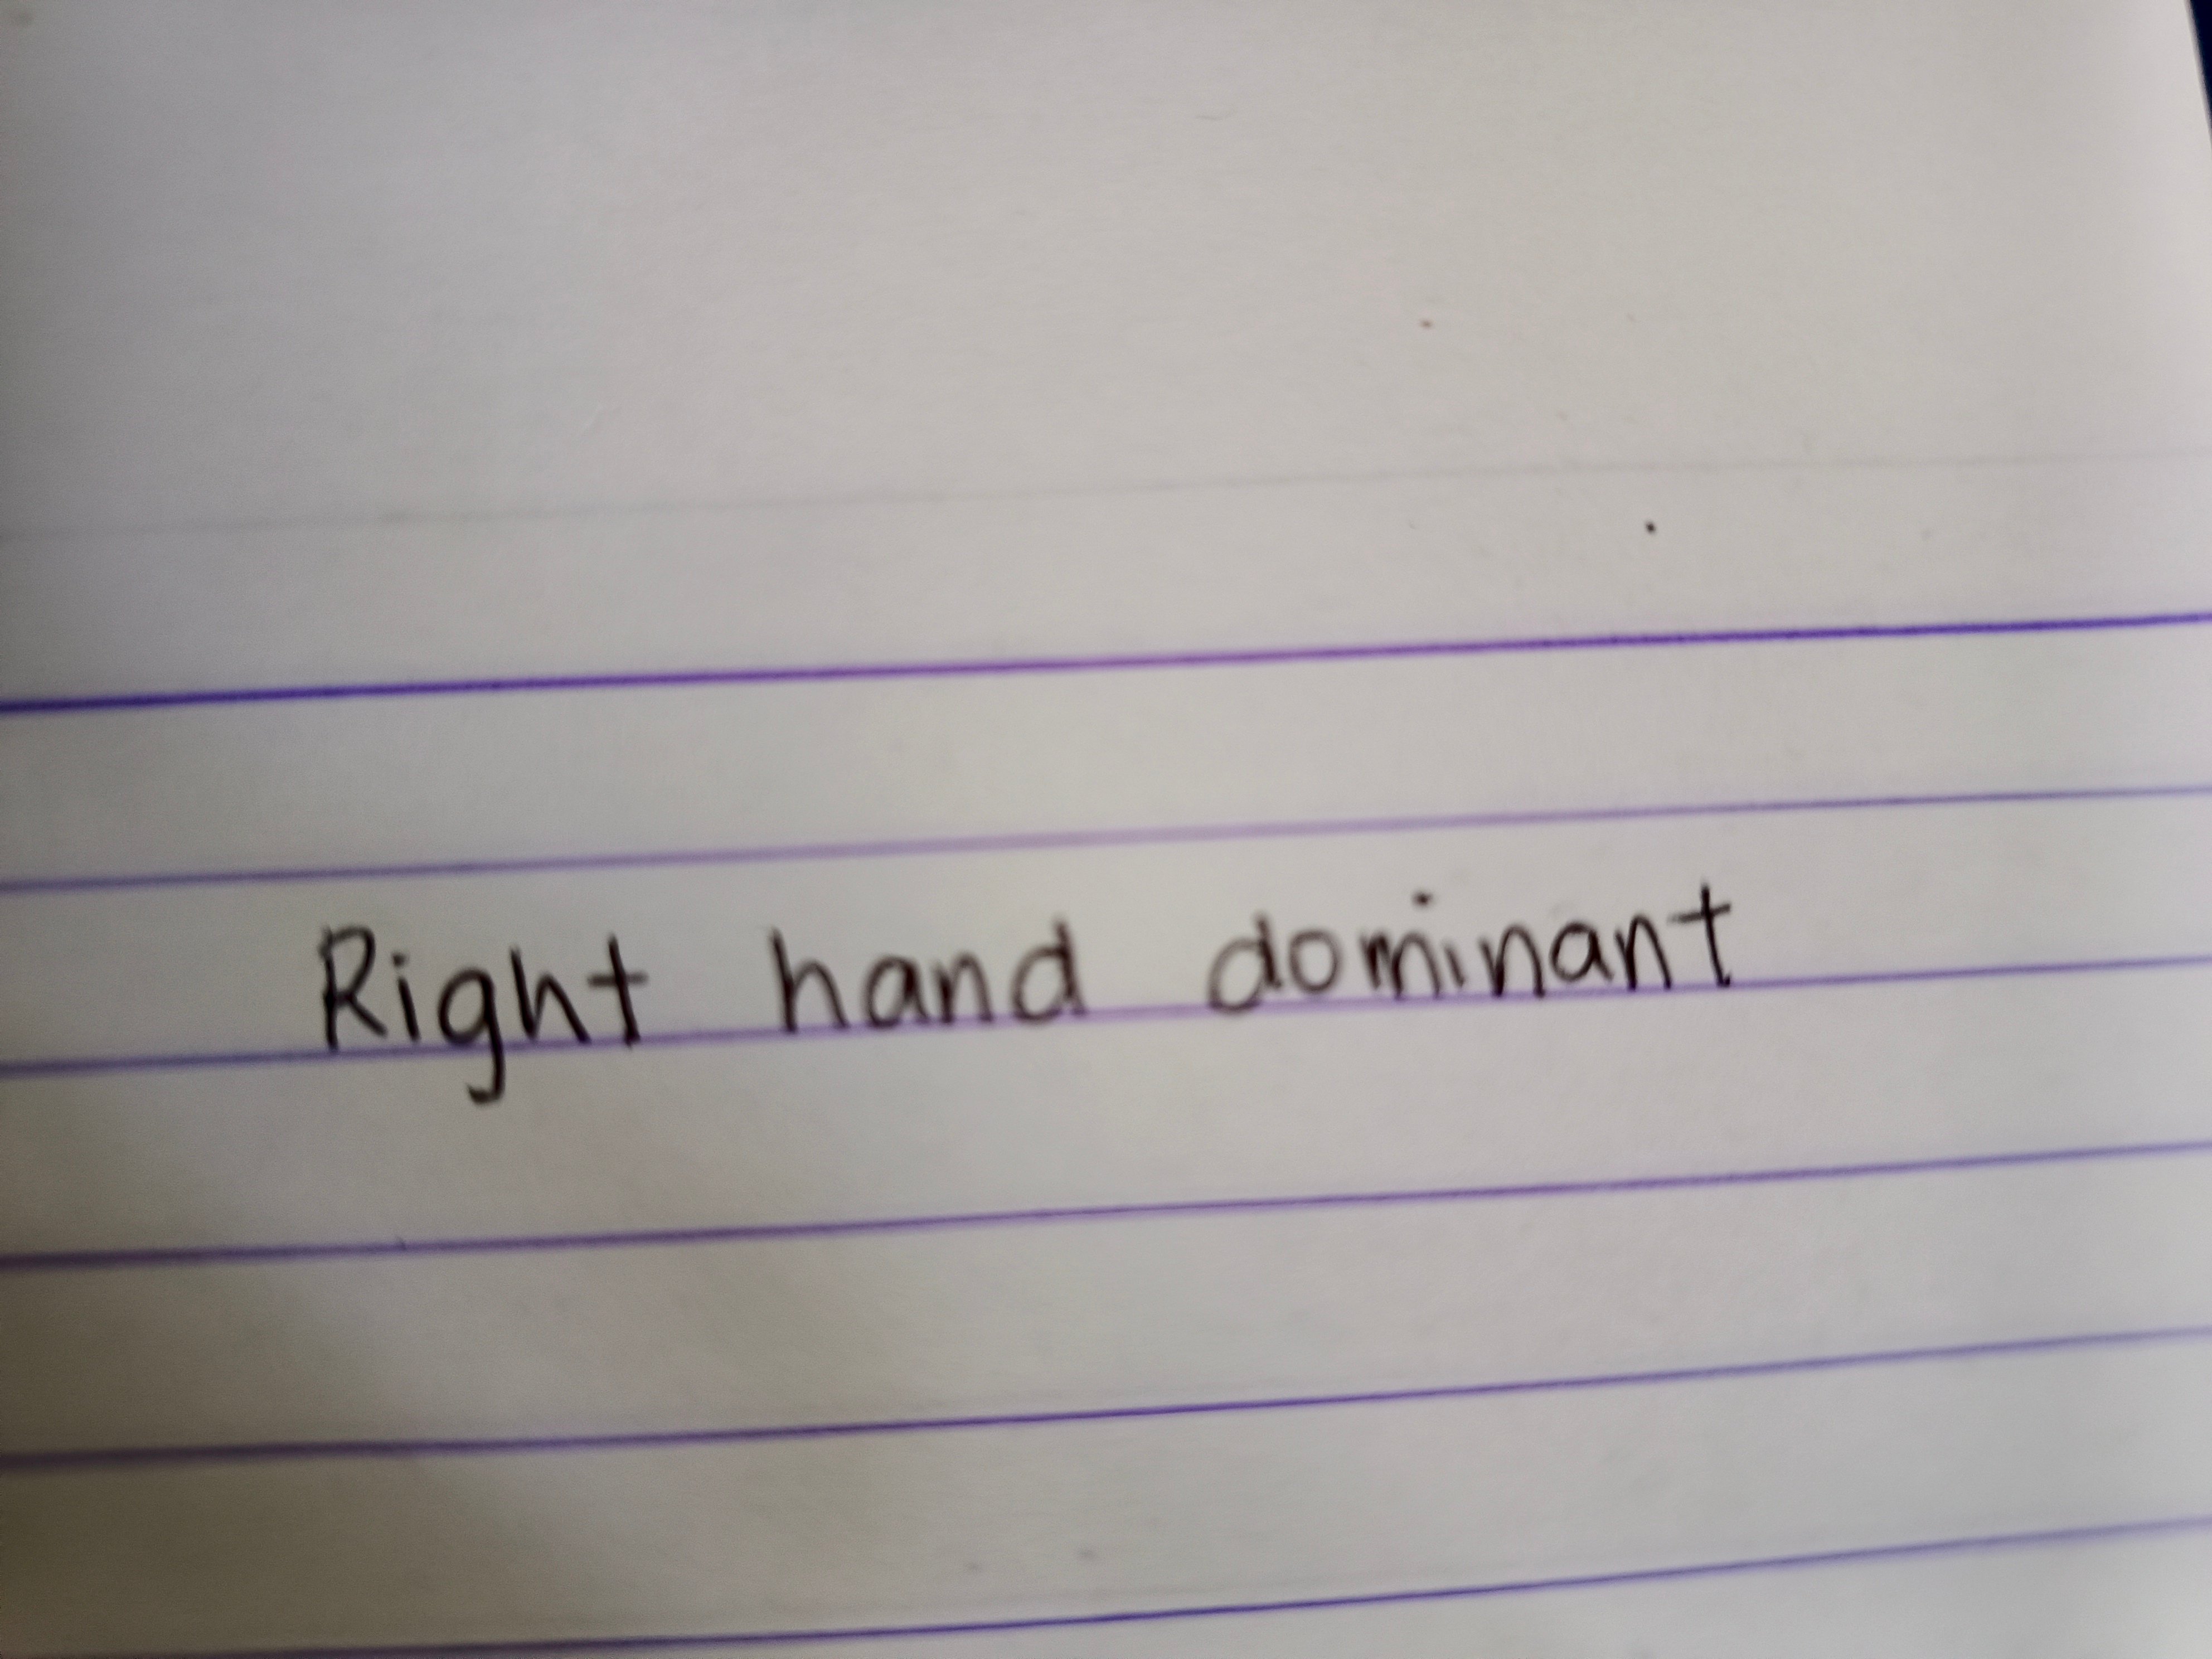 Right hand dominant